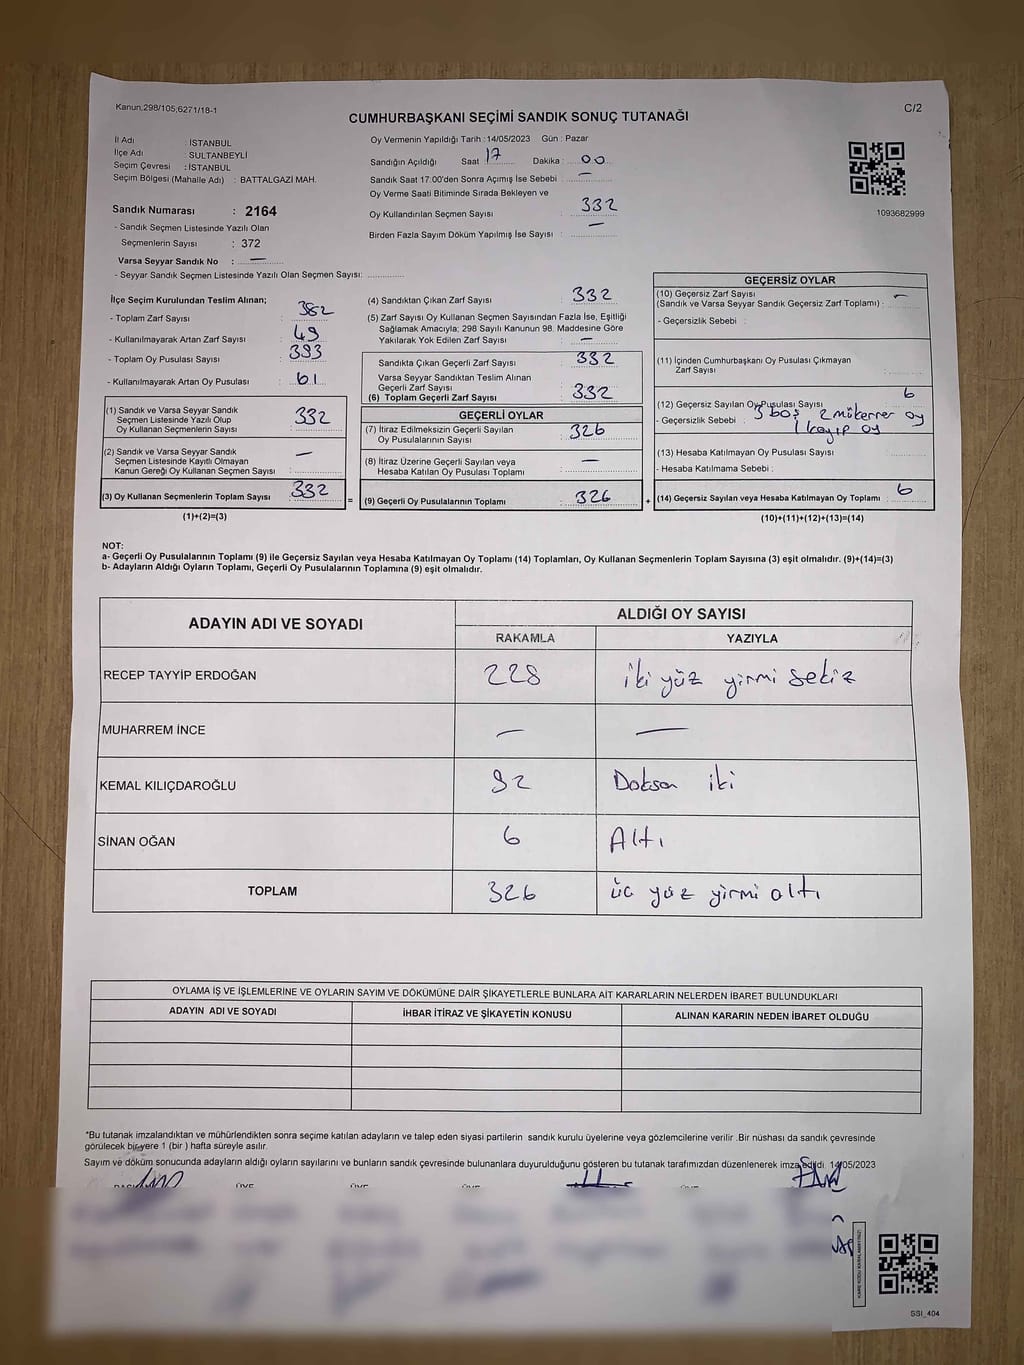 Kanun,298/105,6271/18-1
C/2
CUMHURBAŞKANI SEÇİMİ SANDIK SONUÇ TUTANAĞI
İl Adı : İSTANBUL
İlçe Adı : SULTANBEYLİ
Seçim Çevresi : İSTANBUL
Seçim Bölgesi (Mahalle Adı) : BATTALGAZİ MAH.
Oy Vermenin Yapıldığı Tarih :14/05/2023 Gün : Pazar
Sandığın Açıldığı Saat 17 Dakika : 00
Sandık Saat 17:00'den Sonra Açımış İse Sebebi : —
Oy Verme Saati Bitiminde Sırada Bekleyen ve
Oy Kullandırılan Seçmen Sayısı : 332
Birden Fazla Sayım Döküm Yapılmış İse Sayısı : —
1093682999
Sandık Numarası : 2164
- Sandık Seçmen Listesinde Yazılı Olan
Seçmenlerin Sayısı : 372
Varsa Seyyar Sandık No : —
- Seyyar Sandık Seçmen Listesinde Yazılı Olan Seçmen Sayısı:
İlçe Seçim Kurulundan Teslim Alınan;
- Toplam Zarf Sayısı : 382
- Kullanılmayarak Artan Zarf Sayısı : 49
- Toplam Oy Pusulası Sayısı : 393
- Kullanılmayarak Artan Oy Pusulası : 61
(1) Sandık ve Varsa Seyyar Sandık
Seçmen Listesinde Yazılı Olup
Oy Kullanan Seçmenlerin Sayısı : 332
(2) Sandık ve Varsa Seyyar Sandık
Seçmen Listesinde Kayıtlı Olmayan
Kanun Gereği Oy Kullanan Seçmen Sayısı : —
(3) Oy Kullanan Seçmenlerin Toplam Sayısı : 332
(1)+(2)=(3)
(4) Sandıktan Çıkan Zarf Sayısı : 332
(5) Zarf Sayısı Oy Kullanan Seçmen Sayısından Fazla İse, Eşitliği
Sağlamak Amacıyla; 298 Sayılı Kanunun 98. Maddesine Göre
Yakılarak Yok Edilen Zarf Sayısı : —
Sandıkta Çıkan Geçerli Zarf Sayısı : 332
Varsa Seyyar Sandıktan Teslim Alınan
Geçerli Zarf Sayısı
(6) Toplam Geçerli Zarf Sayısı : 332
GEÇERLİ OYLAR
(7) İtiraz Edilmeksizin Geçerli Sayılan
Oy Pusulalarının Sayısı : 326
(8) İtiraz Üzerine Geçerli Sayılan veya
Hesaba Katılan Oy Pusulası Toplamı : —
= (9) Geçerli Oy Pusulalarının Toplamı : 326
GEÇERSİZ OYLAR
(10) Geçersiz Zarf Sayısı
(Sandık ve Varsa Seyyar Sandık Geçersiz Zarf Toplamı) : —
- Geçersizlik Sebebi :
(11) İçinden Cumhurbaşkanı Oy Pusulası Çıkmayan
Zarf Sayısı :
(12) Geçersiz Sayılan Oy Pusulası Sayısı : 6
- Geçersizlik Sebebi : 3 boş 2 mükerrer oy
1 kayıp oy
(13) Hesaba Katılmayan Oy Pusulası Sayısı :
- Hesaba Katılmama Sebebi :
+ (14) Geçersiz Sayılan veya Hesaba Katılmayan Oy Toplamı : 6
(10)+(11)+(12)+(13)=(14)
NOT:
a- Geçerli Oy Pusulalarının Toplamı (9) ile Geçersiz Sayılan veya Hesaba Katılmayan Oy Toplamı (14) Toplamları, Oy Kullanan Seçmenlerin Toplam Sayısına (3) eşit olmalıdır. (9)+(14)=(3)
b- Adayların Aldığı Oyların Toplamı, Geçerli Oy Pusulalarının Toplamına (9) eşit olmalıdır.
ADAYIN ADI VE SOYADI
ALDIĞI OY SAYISI
RAKAMLA YAZIYLA
RECEP TAYYİP ERDOĞAN 228 iki yüz yirmi sekiz
MUHARREM İNCE — —
KEMAL KILIÇDAROĞLU 92 Doksan iki
SİNAN OĞAN 6 Altı
TOPLAM 326 üç yüz yirmi altı
OYLAMA İŞ VE İŞLEMLERİNE VE OYLARIN SAYIM VE DÖKÜMÜNE DAİR ŞİKAYETLERLE BUNLARA AİT KARARLARIN NELERDEN İBARET BULUNDUKLARI
ADAYIN ADI VE SOYADI İHBAR İTİRAZ VE ŞİKAYETİN KONUSU ALINAN KARARIN NEDEN İBARET OLDUĞU
*Bu tutanak imzalandıktan ve mühürlendikten sonra seçime katılan adayların ve talep eden siyasi partilerin sandık kurulu üyelerine veya gözlemcilerine verilir .Bir nüshası da sandık çevresinde
görülecek bir yere 1 (bir ) hafta süreyle asılır.
Sayım ve döküm sonucunda adayların aldığı oyların sayılarını ve bunların sandık çevresinde bulunanlara duyurulduğunu gösteren bu tutanak tarafımızdan düzenlenerek imza edildi. 14/05/2023
ÜYE ÜYE ÜYE ÜYE
(KARE KODU KARALAMAYINIZ)
SSI_404